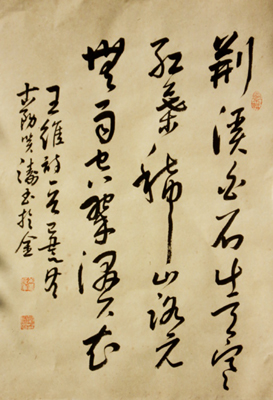 荊溪白石出天寒
紅葉稀山路元
無雨空翠濕人衣
王維詩一首
書於金